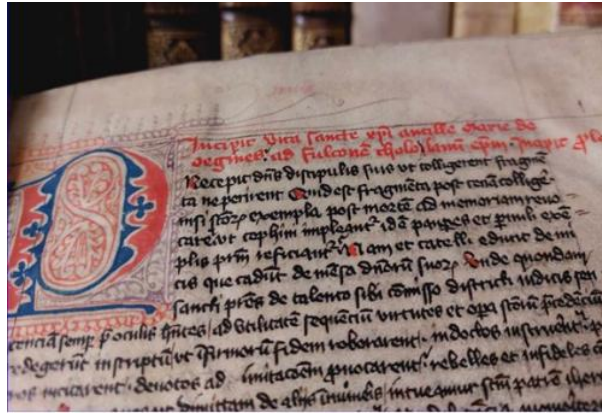 Incipit vita sancte xpi ancille marie de
oegines. ad fulconē tholosanū epm. Incipit ꝓl
Recepit dn̄s discipulis suis vt colligerent fragmē
ta ne perirent Quid est fragmēta post cenā collige
nisi sctoꝝ exempla post mortē ad memoriam reuo
care. vt cophini impleant᷑. idē pauꝑes et ꝑuuli exē
plis prm̄ reficiant᷑. Nam et catelli edunt de mi
cis que cadūt de mēsa dn̄orū suoꝝ. Unde quondam
sancti pr̄es de talento sibi cōmisso districti iudicis sen
tenciā semꝑ p̄ oculis hn̄tes. ad vtilitatē sequēciū virtutes et oꝑa sctorū p̄cedēciū
redegerūt in scriptū vt firmorū fidem roborarent. indoctos instruerēt. ꝑ
ros incitarent. devotos ad imitacōem ꝓuocarent. rebelles et infideles
dimittam de aliis in intueamur scm̄ patrē iher